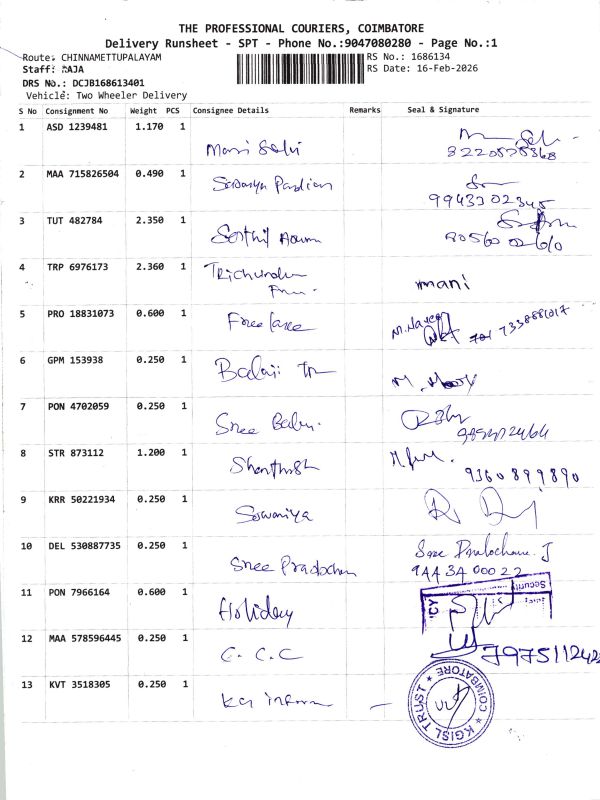 THE PROFESSIONAL COURIERS, COIMBATORE
Delivery Runsheet - SPT - Phone No.:9047080280 - Page No.:1
Route: CHINNAMETTUPALAYAM
RS No.: 1686134
Staff: RAJA
RS Date: 16-Feb-2026
DRS No.: DCJB168613401
Vehicle: Two Wheeler Delivery
S No Consignment No Weight PCS Consignee Details Remarks Seal & Signature
1 ASD 1239481 1.170 1 Mani Selvi
8220575868
2 MAA 715826504 0.490 1 Pandian
99433 02345
3 TUT 482784 2.350 1 Senthil
4 TRP 6976173 2.360 1 mani
5 PRO 18831073 0.600 1 Freelance M. Naveen
6 GPM 153938 0.250 1 Balaji M.
7 PON 4702059 0.250 1 Sree Babu.
8 STR 873112 1.200 1 Shanthish
9360899890
9 KRR 50221934 0.250 1 Sowaniya
10 DEL 530887735 0.250 1 Sree J
944 34 00022
11 PON 7966164 0.600 1 Holiday Security
12 MAA 578596445 0.250 1 C. C. C
13 KVT 3518305 0.250 1 KGISL TRUST COIMBATORE